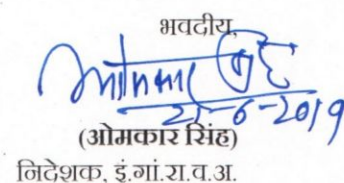 भवदीय,
ओमकार सिंह
21-6-2019
(ओमकार सिंह)
निदेशक, इं.गां.रा.व.अ.